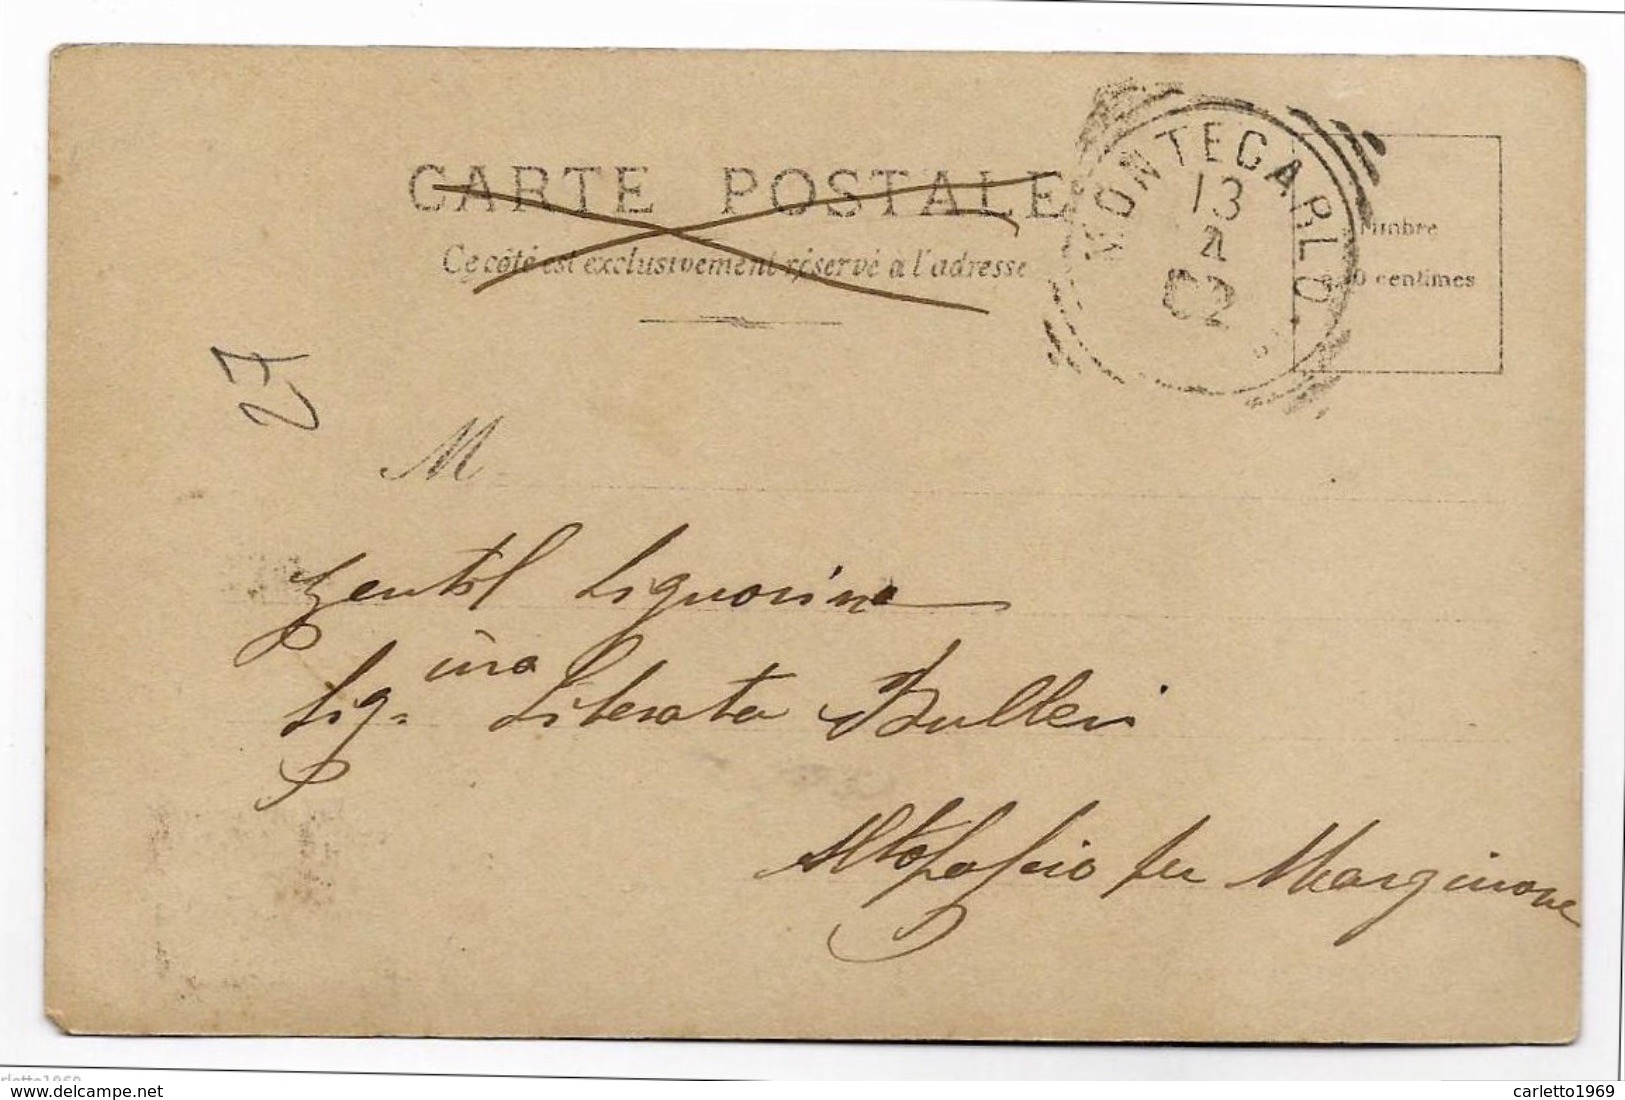 CARTE POSTALE
Ce côté est exclusivement réservé à l'adresse
MONTECARLO
13
4
02
Timbre
à 10 centimes
27
M
Gentil Signorina
Sig.ina Liberata Bulleri
Altopascio per Marginone
carletto1969